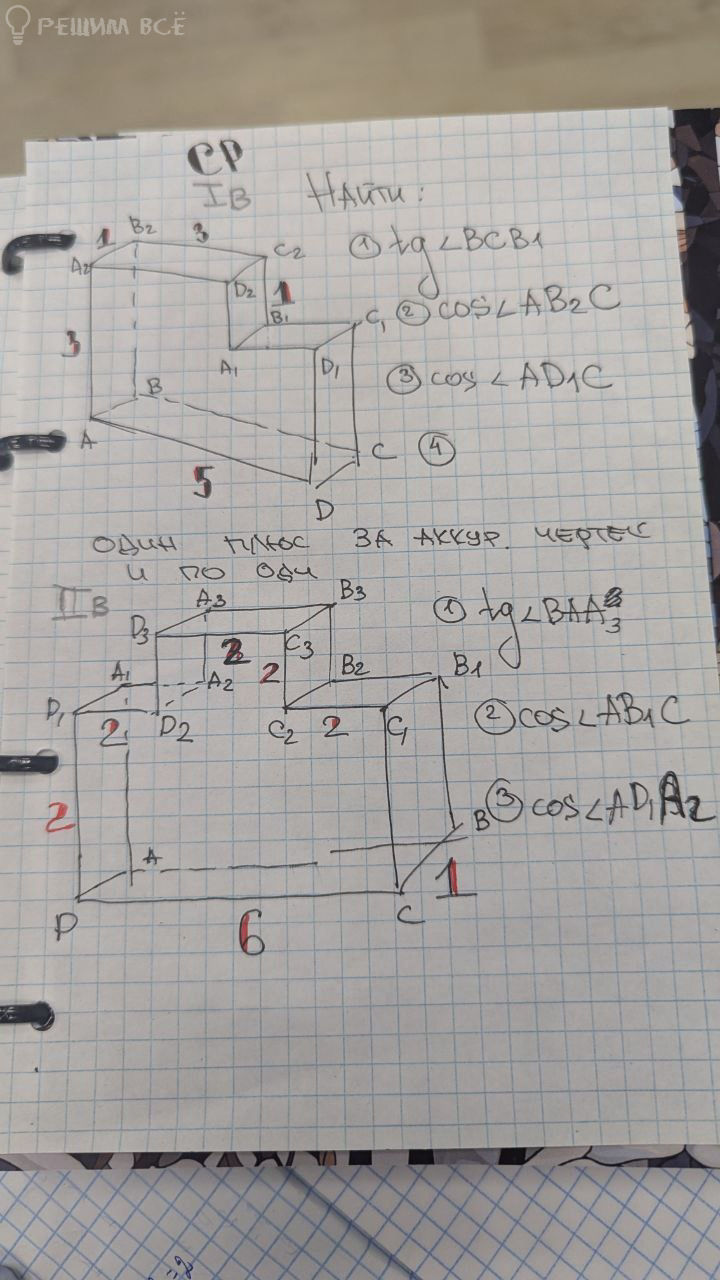 РЕШИМ ВСЁ
СР
I В НАЙТИ:
① tg ∠BCB1
② cos ∠AB2C
③ cos ∠AD1C
④
1 B2 3
A2 C2
D2 1
B1 C1
3
A1 D1
B
A C
5
D
ОДИН ПЛЮС ЗА АККУР. ЧЕРТЕЖ
И ПО ОДН
II В
① tg ∠BAA3
② cos ∠AB1C
③ cos ∠AD1A2
A3 B3
D3 C3
2 2
A1 A2 B2 B1
D1 2 D2 C2 2 C1
2
A B
1
D C
6